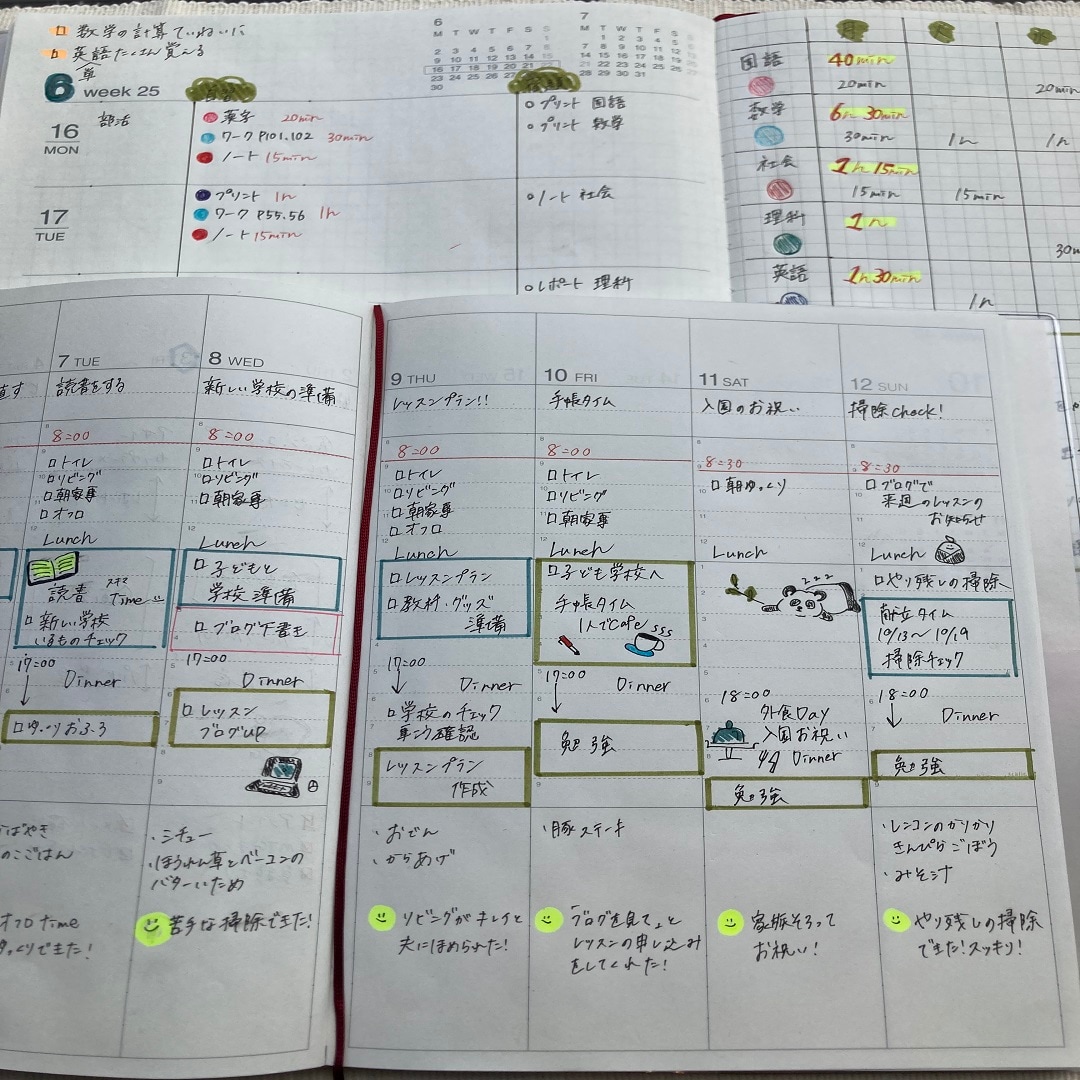 数学の計算ていねいに
英語たくさん覚える
単
6 week 25
6
M T W T F S S
1
2 3 4 5 6 7 8
9 10 11 12 13 14 15
16 17 18 19 20 21 22
23 24 25 26 27 28 29
30
7
M T W T F S S
1 2 3 4 5 6
7 8 9 10 11 12 13
14 15 16 17 18 19 20
21 22 23 24 25 26 27
28 29 30 31
16
MON
部活
漢字 20min
ワーク P101.102 30min
ノート 15min
プリント 国語
プリント 数学
17
TUE
プリント 1h
ワーク P55.56 1h
ノート 15min
ノート 社会
レポート 理科
月
国語 40min
20min 20min
数学 6h 30min
30min 1h 1h
社会 1h 15min
15min 15min
理科 1h
30
英語 1h 30min
1h
7 TUE
読書をする
8:00
トイレ
リビング
朝家事
オフロ
Lunch
読書 スキマ Time
新しい学校
いるものチェック
17:00
Dinner
ゆっくりおふろ
ばやき
のこごはん
オフロ Time
できた!
8 WED
新しい学校の準備
8:00
トイレ
リビング
朝家事
Lunch
子どもと
学校準備
ブログ下書き
17:00
Dinner
レッスン
ブログUP
・シチュー
・ほうれん草とベーコンの
バターいため
苦手な掃除できた!
9 THU
レッスンプラン!!
8:00
トイレ
リビング
朝家事
オフロ
Lunch
レッスンプラン
教材・グッズ
準備
17:00
Dinner
学校のチェック
確認
レッスンプラン
作成
・おでん
・からあげ
リビングがキレイと
夫にほめられた!
10 FRI
手帳タイム
8:00
トイレ
リビング
朝家事
Lunch
子ども学校へ
手帳タイム
1人でCafe
17:00
Dinner
勉強
・豚ステーキ
「ブログを見て」と
レッスンの申し込み
をしてくれた!
11 SAT
入園のお祝い
8:30
朝ゆっくり
Lunch
zzz
18:00
外食Day
入園お祝い
Dinner
勉強
家族そろって
お祝い!
12 SUN
掃除check!
8:30
ブログで
来週のレッスンの
お知らせ
Lunch
やり残しの掃除
献立タイム
10/13〜10/19
掃除チェック
18:00
Dinner
勉強
・レンコンのカリカリ
きんぴらごぼう
・みそ汁
やり残しの掃除
できた!スッキリ!